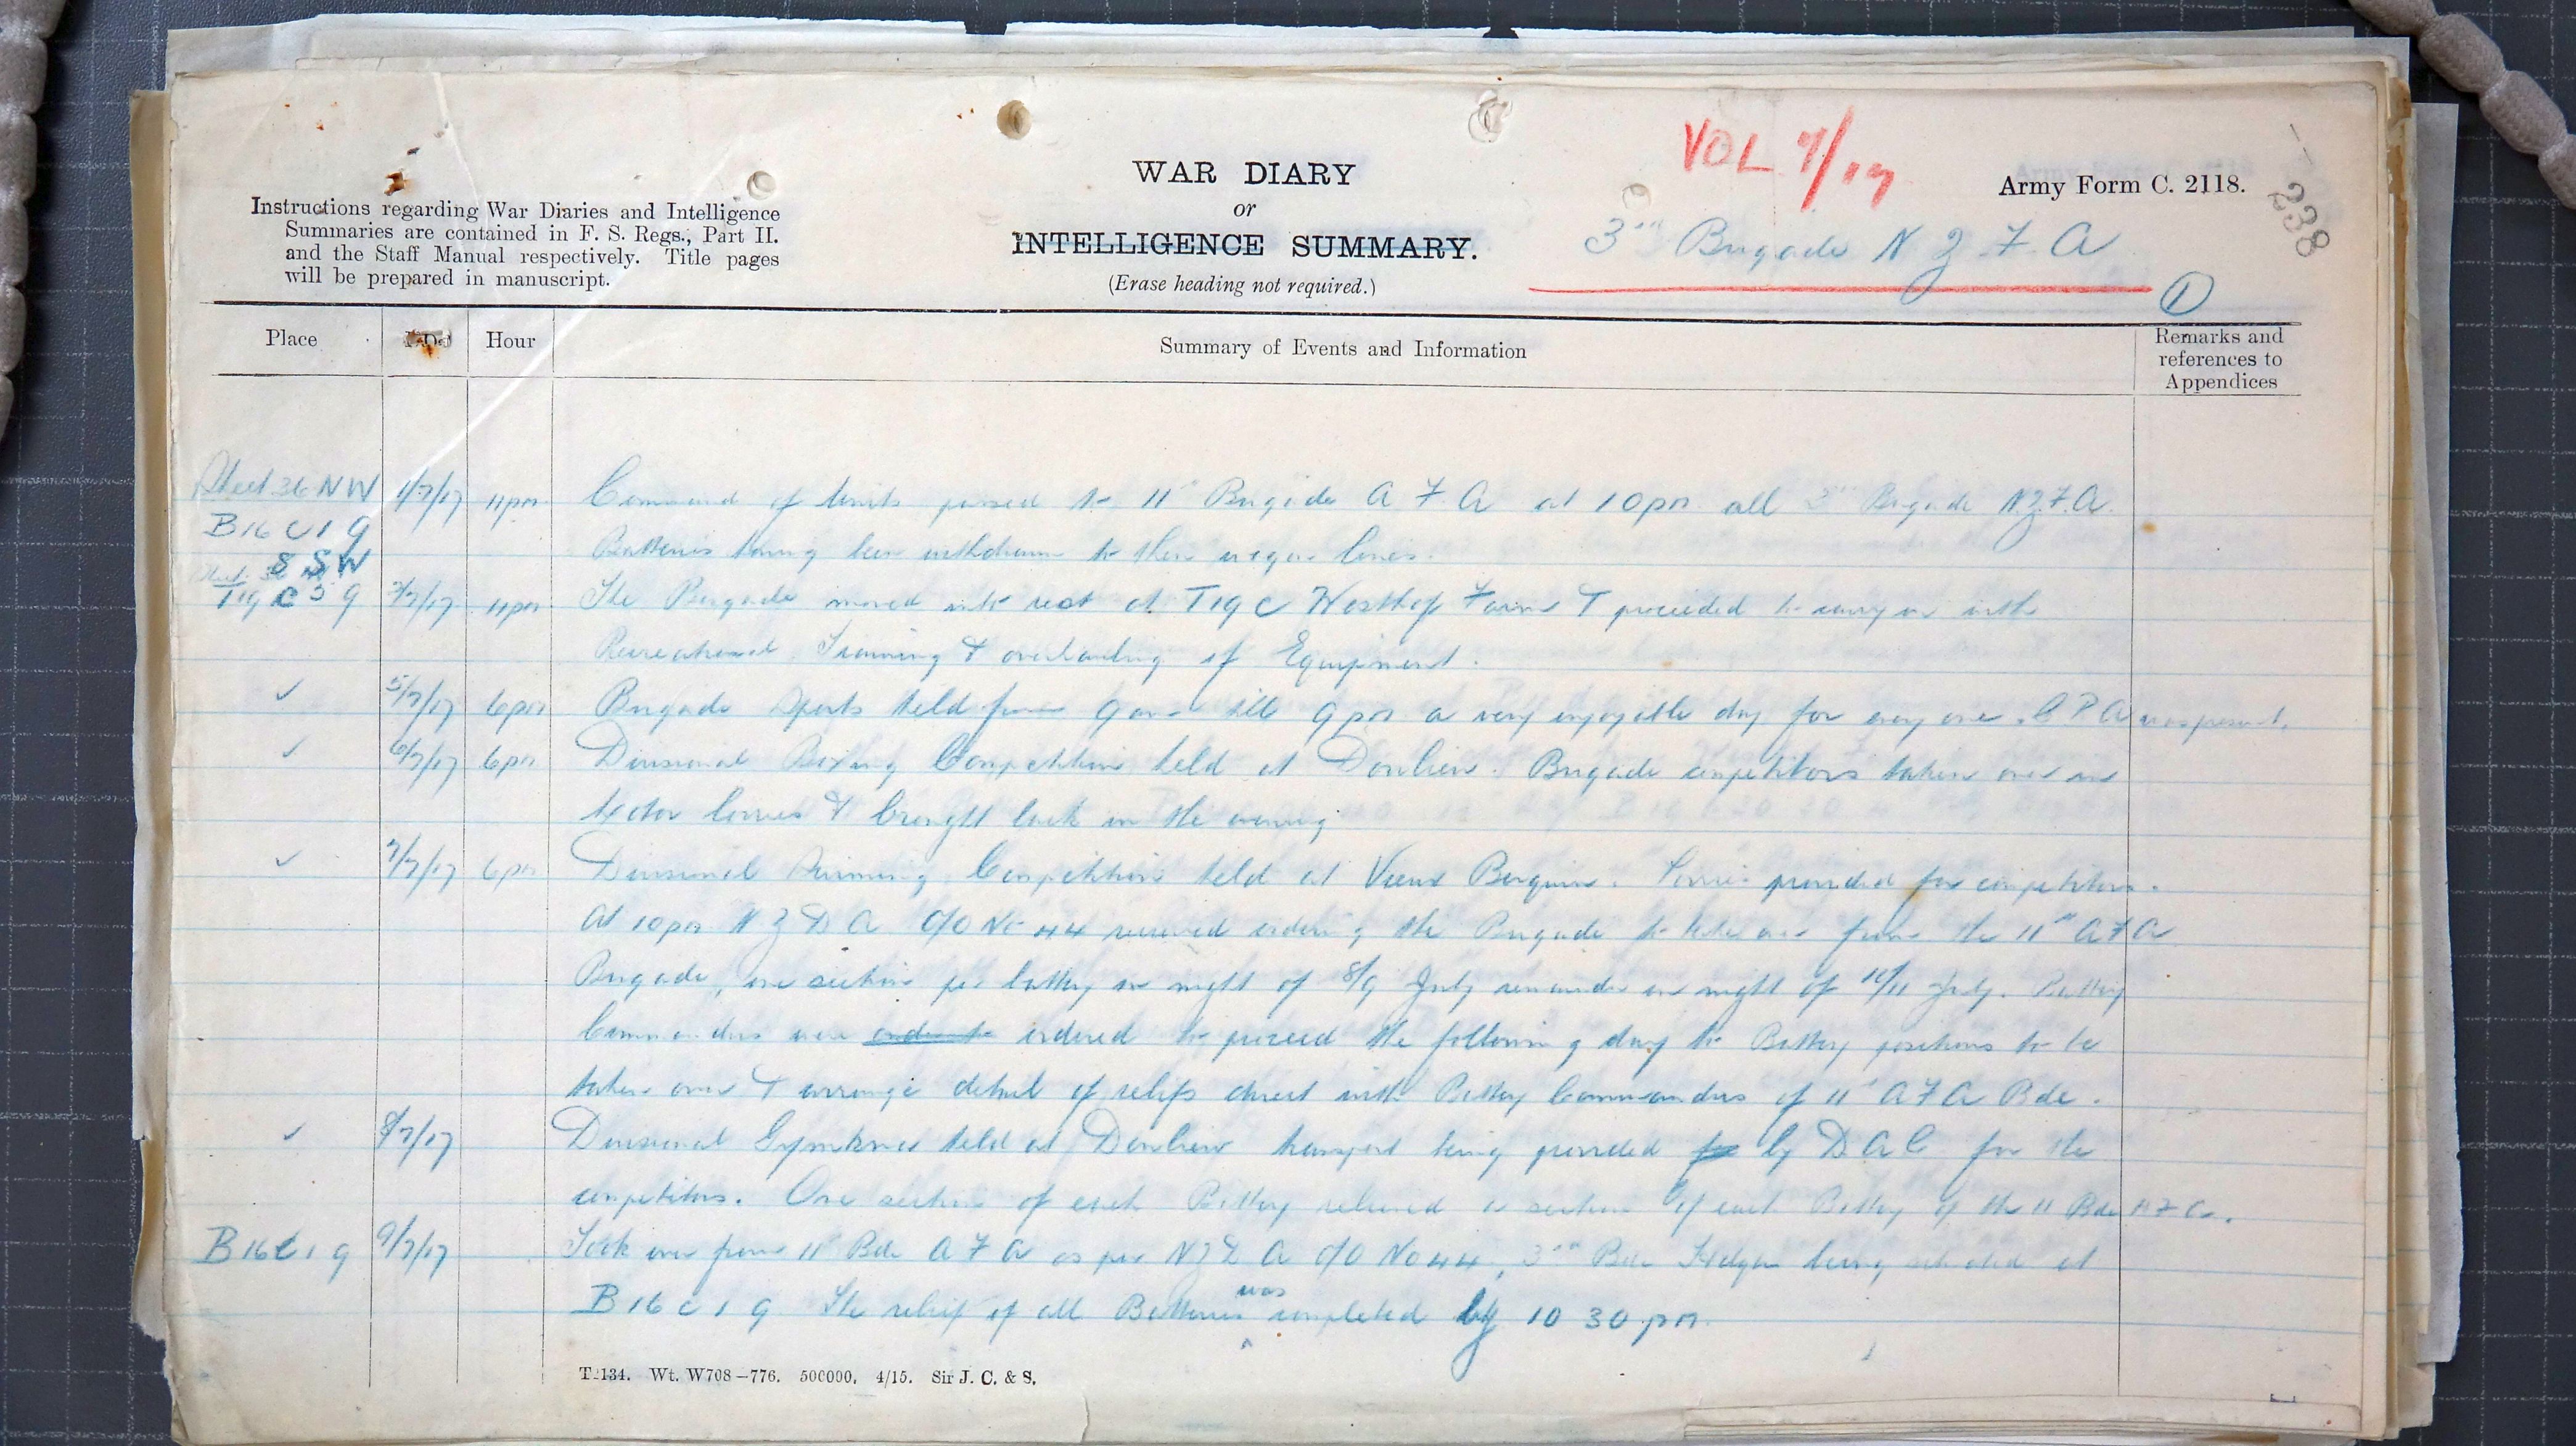 VOL 7/17
WAR DIARY
or
INTELLIGENCE SUMMARY.
(Erase heading not required.)
Army Form C. 2118.
238
Instructions regarding War Diaries and Intelligence
Summaries are contained in F. S. Regs., Part II.
and the Staff Manual respectively. Title pages
will be prepared in manuscript.
3rd Brigade N Z F A
1
Place
Hour
Summary of Events and Information
Remarks and
references to
Appendices
Sheet 36 NW 1/7/17 11pm Command of units passed to 11th Brigade A F A at 10pm all 3rd Brigade N.Z.F.A.
B16 C 1 9 Batteries having been withdrawn to their wagon lines.
S SW
T19 C 5 9 2/7/17 11pm The Brigade moved into rest at T19 C Westhof Farm & proceeded to carry on with
Recreational Training & overhauling of Equipment.
✓ 5/7/17 6pm Brigade Sports held from 9am till 9pm a very enjoyable day for every one. C R A was present.
✓ 6/7/17 6pm Divisional Boxing Competition held at Doulieu. Brigade competitors taken over in
Motor lorries & brought back in the evening
✓ 7/7/17 6pm Divisional Swimming Competition held at Vieux Berquin. Lorries provided for competitors.
At 10pm N Z D A O/O No 44 received ordering the Brigade to take over from the 11th A F A
Brigade, one section per battery on night of 8/9 July remainder on night of 10/11 July. Battery
Commanders were ordered to proceed the following day to Battery positions to be
taken over & arrange detail of reliefs direct with Battery Commanders of 11th A F A Bde.
✓ 8/7/17 Divisional Gymkhana held at Doulieu transport being provided for by D A C for the
competitors. One section of each Battery relieved a section of each Battery of the 11 Bde A F A.
B16 C 1 9 9/7/17 Took over from 11th Bde A F A as per N Z D A O/O No 44, 3rd Bde Hdqrs being situated at
B 16 c 1 9 The relief of all Batteries was completed by 10 30 pm.
T.134. Wt. W708–776. 500000. 4/15. Sir J. C. & S.